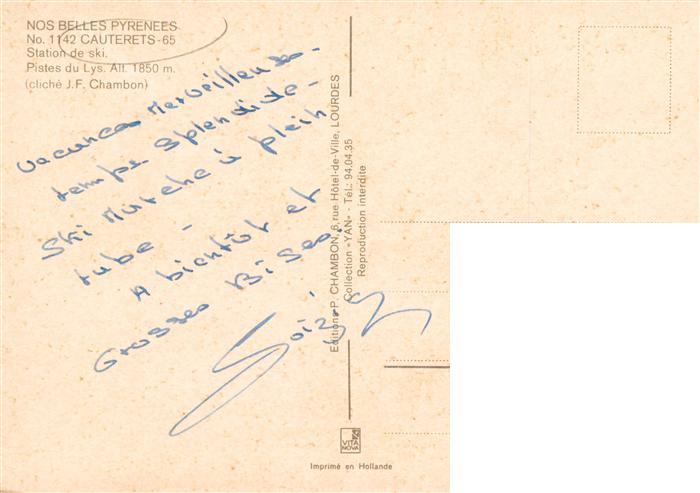 NOS BELLES PYRENEES
No. 1142 CAUTERETS-65
Station de ski.
Pistes du Lys. Alt. 1850 m.
(cliché J.F. Chambon)
Vacances Merveilleuses -
temps splendide -
Ski Marche à plein
tube -
A bientôt et
Grosses Bises.
Editions P. CHAMBON, 6, rue Hôtel-de-Ville, LOURDES
Collection «YAN» - Tél.: 94.04.35
Reproduction interdite
VITA
NOVA
Imprimé en Hollande